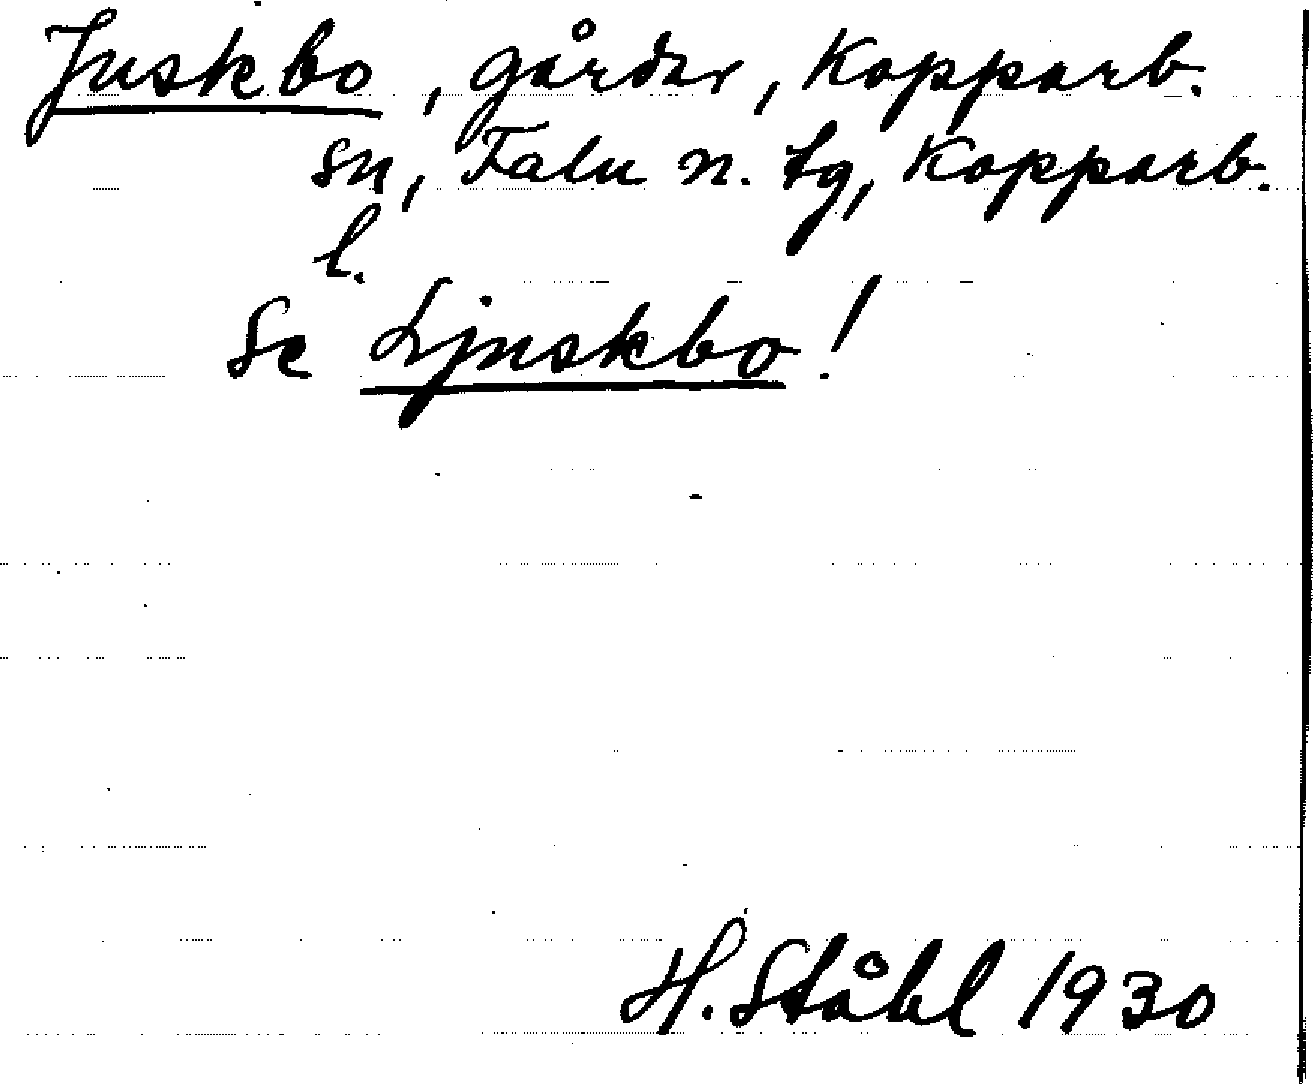 Juskbo, gårdar, Kopparb.
sn, Falu n. tg, Kopparb.
l.
Se Ljuskbo!
H. Ståhl 1930